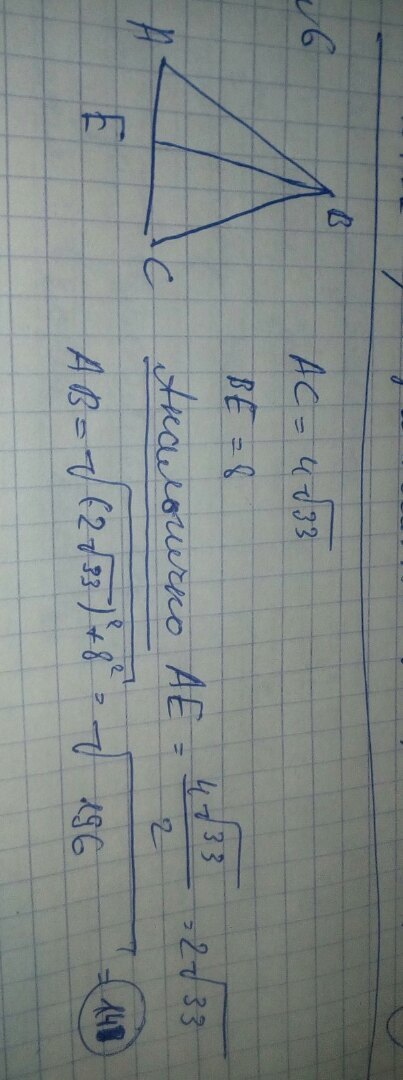 №6
B
A
E
C
AC = 4√33
BE = 8
Аналогично AE = 4√33/2 = 2√33
AB = √(2√33)² + 8² = √196 = 14